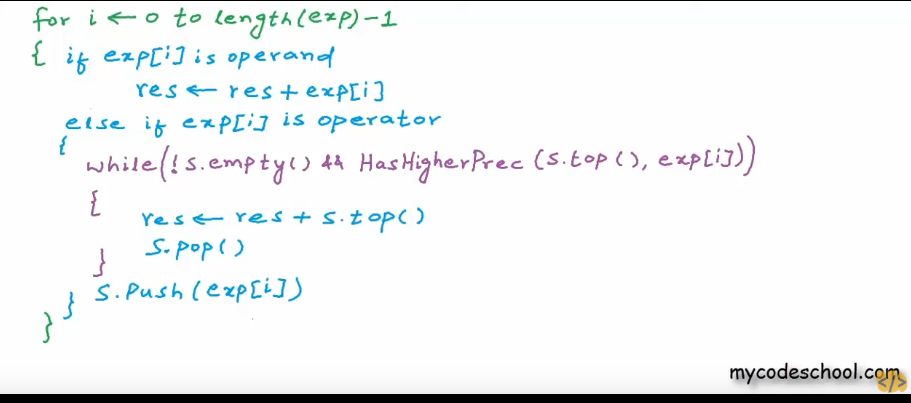 for i ← 0 to length(exp)-1
{ if exp[i] is operand
res ← res + exp[i]
else if exp[i] is operator
{
while(!s.empty() && HasHigherPrec (s.top(), exp[i]))
{
res ← res + s.top()
S.pop()
}
} S.Push(exp[i])
}
mycodeschool.com